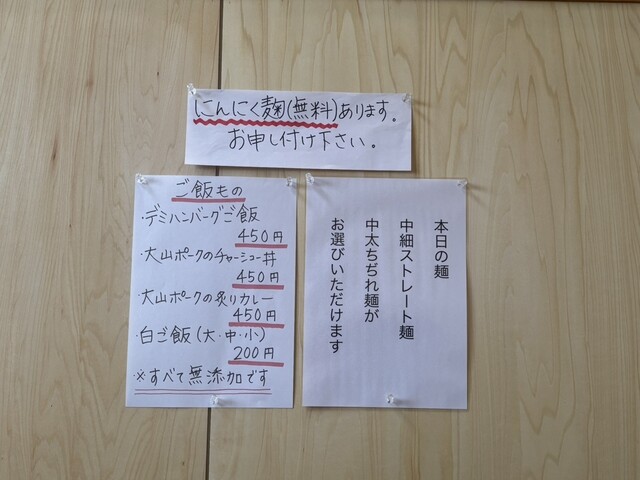 にんにく麹(無料)あります。
お申し付け下さい。
ご飯もの
・デミハンバーグご飯
450円
・大山ポークのチャーシュー丼
450円
・大山ポークの炙りカレー
450円
・白ご飯(大・中・小)
200円
・※すべて無添加です
本日の麺
中細ストレート麺
中太ちぢれ麺が
お選びいただけます